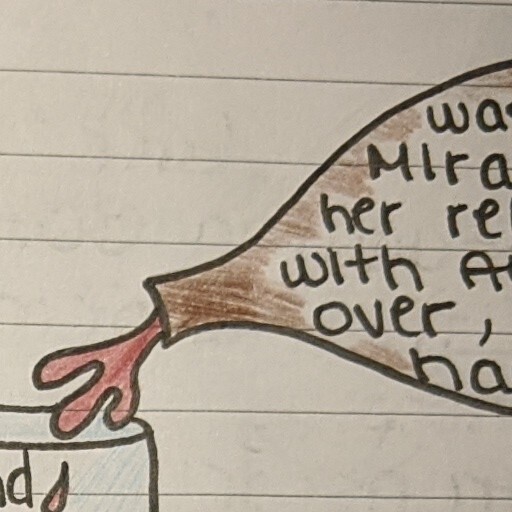 was
Mira
her rel
with A
over,
na
nd